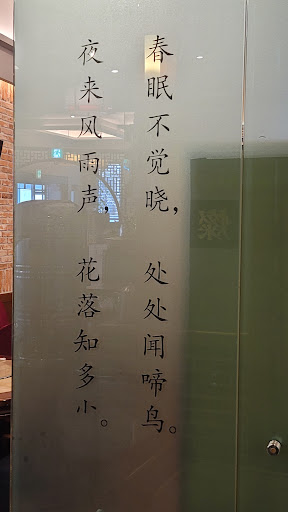 春眠不觉晓，处处闻啼鸟。
夜来风雨声，花落知多小。